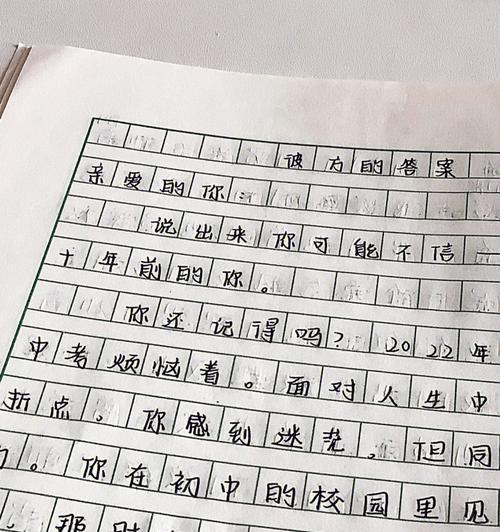 彼方的答案
亲爱的你
说出来你可能不信
十年前的你。
你还记得吗？2022年
中考烦恼着。面对人生中
折点。你感到迷茫。但同
。你在初中的校园里见
那时